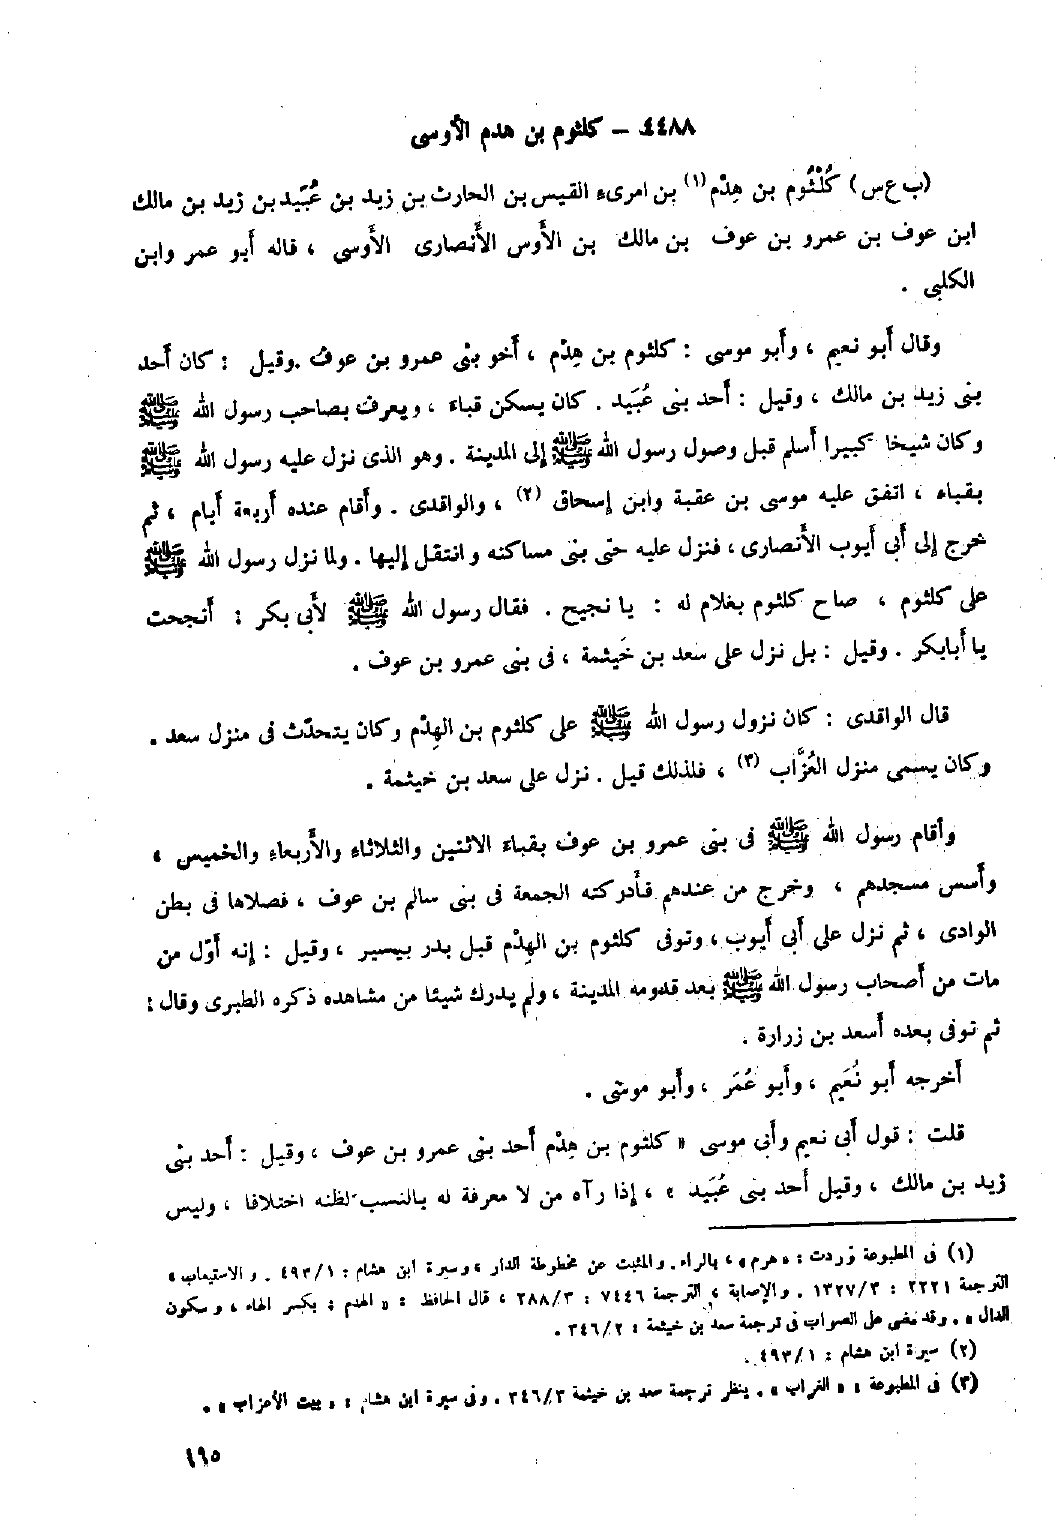 ٤٤٨٨ – كلثوم بن هدم الأوسى
(ب ع س) كُلْثُوم بن هِدْم (١) بن امرىء القيس بن الحارث بن زيد بن عُبَيد بن زيد بن مالك
ابن عوف بن عمرو بن عوف بن مالك بن الأَوس الأَنصارى الأَوسى ، قاله أَبو عمر وابن
الكلبى .
وقال أَبو نعيم ، وأَبو موسى : كلثوم بن هِدْم ، أَخو بنى عمرو بن عوف . وقيل : كان أَحد
بنى زيد بن مالك ، وقيل : أَحد بنى عُبَيد . كان يسكن قباء ، ويعرف بصاحب رسول الله ﷺ
وكان شيخا كبيرا أَسلم قبل وصول رسول الله ﷺ إلى المدينة . وهو الذى نزل عليه رسول الله ﷺ
بقباء ، اتفق عليه موسى بن عقبة وابن إسحاق (٢) ، والواقدى . وأَقام عنده أَربعة أَيام ، ثم
خرج إلى أَبى أَيوب الأَنصارى ، فنزل عليه حتى بنى مساكنه وانتقل إليها . ولما نزل رسول الله ﷺ
على كلثوم ، صاح كلثوم بغلام له : يا نجيح . فقال رسول الله ﷺ لأَبى بكر : أَنجحت
يا أَبا بكر . وقيل : بل نزل على سعد بن خَيثمة ، فى بنى عمرو بن عوف .
قال الواقدى : كان نزول رسول الله ﷺ على كلثوم بن الهِدْم وكان يتحدّث فى منزل سعد .
وكان يسمى منزل العُزَّاب (٣) ، فلذلك قيل . نزل على سعد بن خيثمة .
وأَقام رسول الله ﷺ فى بنى عمرو بن عوف بقباء الاثنين والثلاثاء والأَربعاء والخميس ،
وأَسس مسجدهم ، وخرج من عندهم فأَدركته الجمعة فى بنى سالم بن عوف ، فصلاها فى بطن
الوادى ، ثم نزل على أَبى أَيوب ، وتوفى كلثوم بن الهِدْم قبل بدر بيسير ، وقيل : إنه أَوّل من
مات من أَصحاب رسول الله ﷺ بعد قدومه المدينة ، ولم يدرك شيئا من مشاهده ذكره الطبرى وقال :
ثم توفى بعده أَسعد بن زرارة .
أَخرجه أَبو نُعَيم ، وأَبو عُمَر ، وأَبو موسى .
قلت : قول أَبى نعيم وأَبى موسى « كلثوم بن هِدْم أَحد بنى عمرو بن عوف ، وقيل : أَحد بنى
زيد بن مالك ، وقيل أَحد بنى عُبَيد » ، إذا رآه من لا معرفة له بالنسب لظنه اختلافا ، وليس
(١) فى المطبوعة وردت : « هرم » ، بالراء. والمثبت عن مخطوطة الدار ، وسيرة ابن هشام : ٤٩٣/١ . والاستيعاب ،
الترجمة ٢٢٢١ : ١٣٢٧/٣ . والإصابة ، الترجمة ٧٤٤٦ : ٢٨٨/٣ ، قال الحافظ : « الهدم : بكسر الهاء ، وسكون
الدال » . وقد مضى على الصواب فى ترجمة سعد بن خيثمة : ٣٤٦/٢ .
(٢) سيرة ابن هشام : ٤٩٣/١ .
(٣) فى المطبوعة : « الغراب » . ينظر ترجمة سعد بن خيثمة ٣٤٦/٣ . وفى سيرة ابن هشام : « بيت الأعزاب » .
٤٩٥